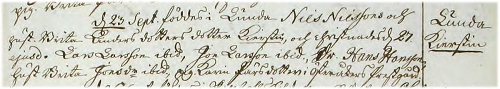 d. 23 Sept. föddes i Lunda Nils Nilssons och
hust. Brita Anders dotters dotter Kierstin, och christnades d. 27
ejusd. Lars Larsson ibid, Jon Larsson ibid, Dr. Hans Hansson
hust. Brita Jonsdr. ibid, og Karin Larsdotter i Prestgård
Lunda
Kierstin